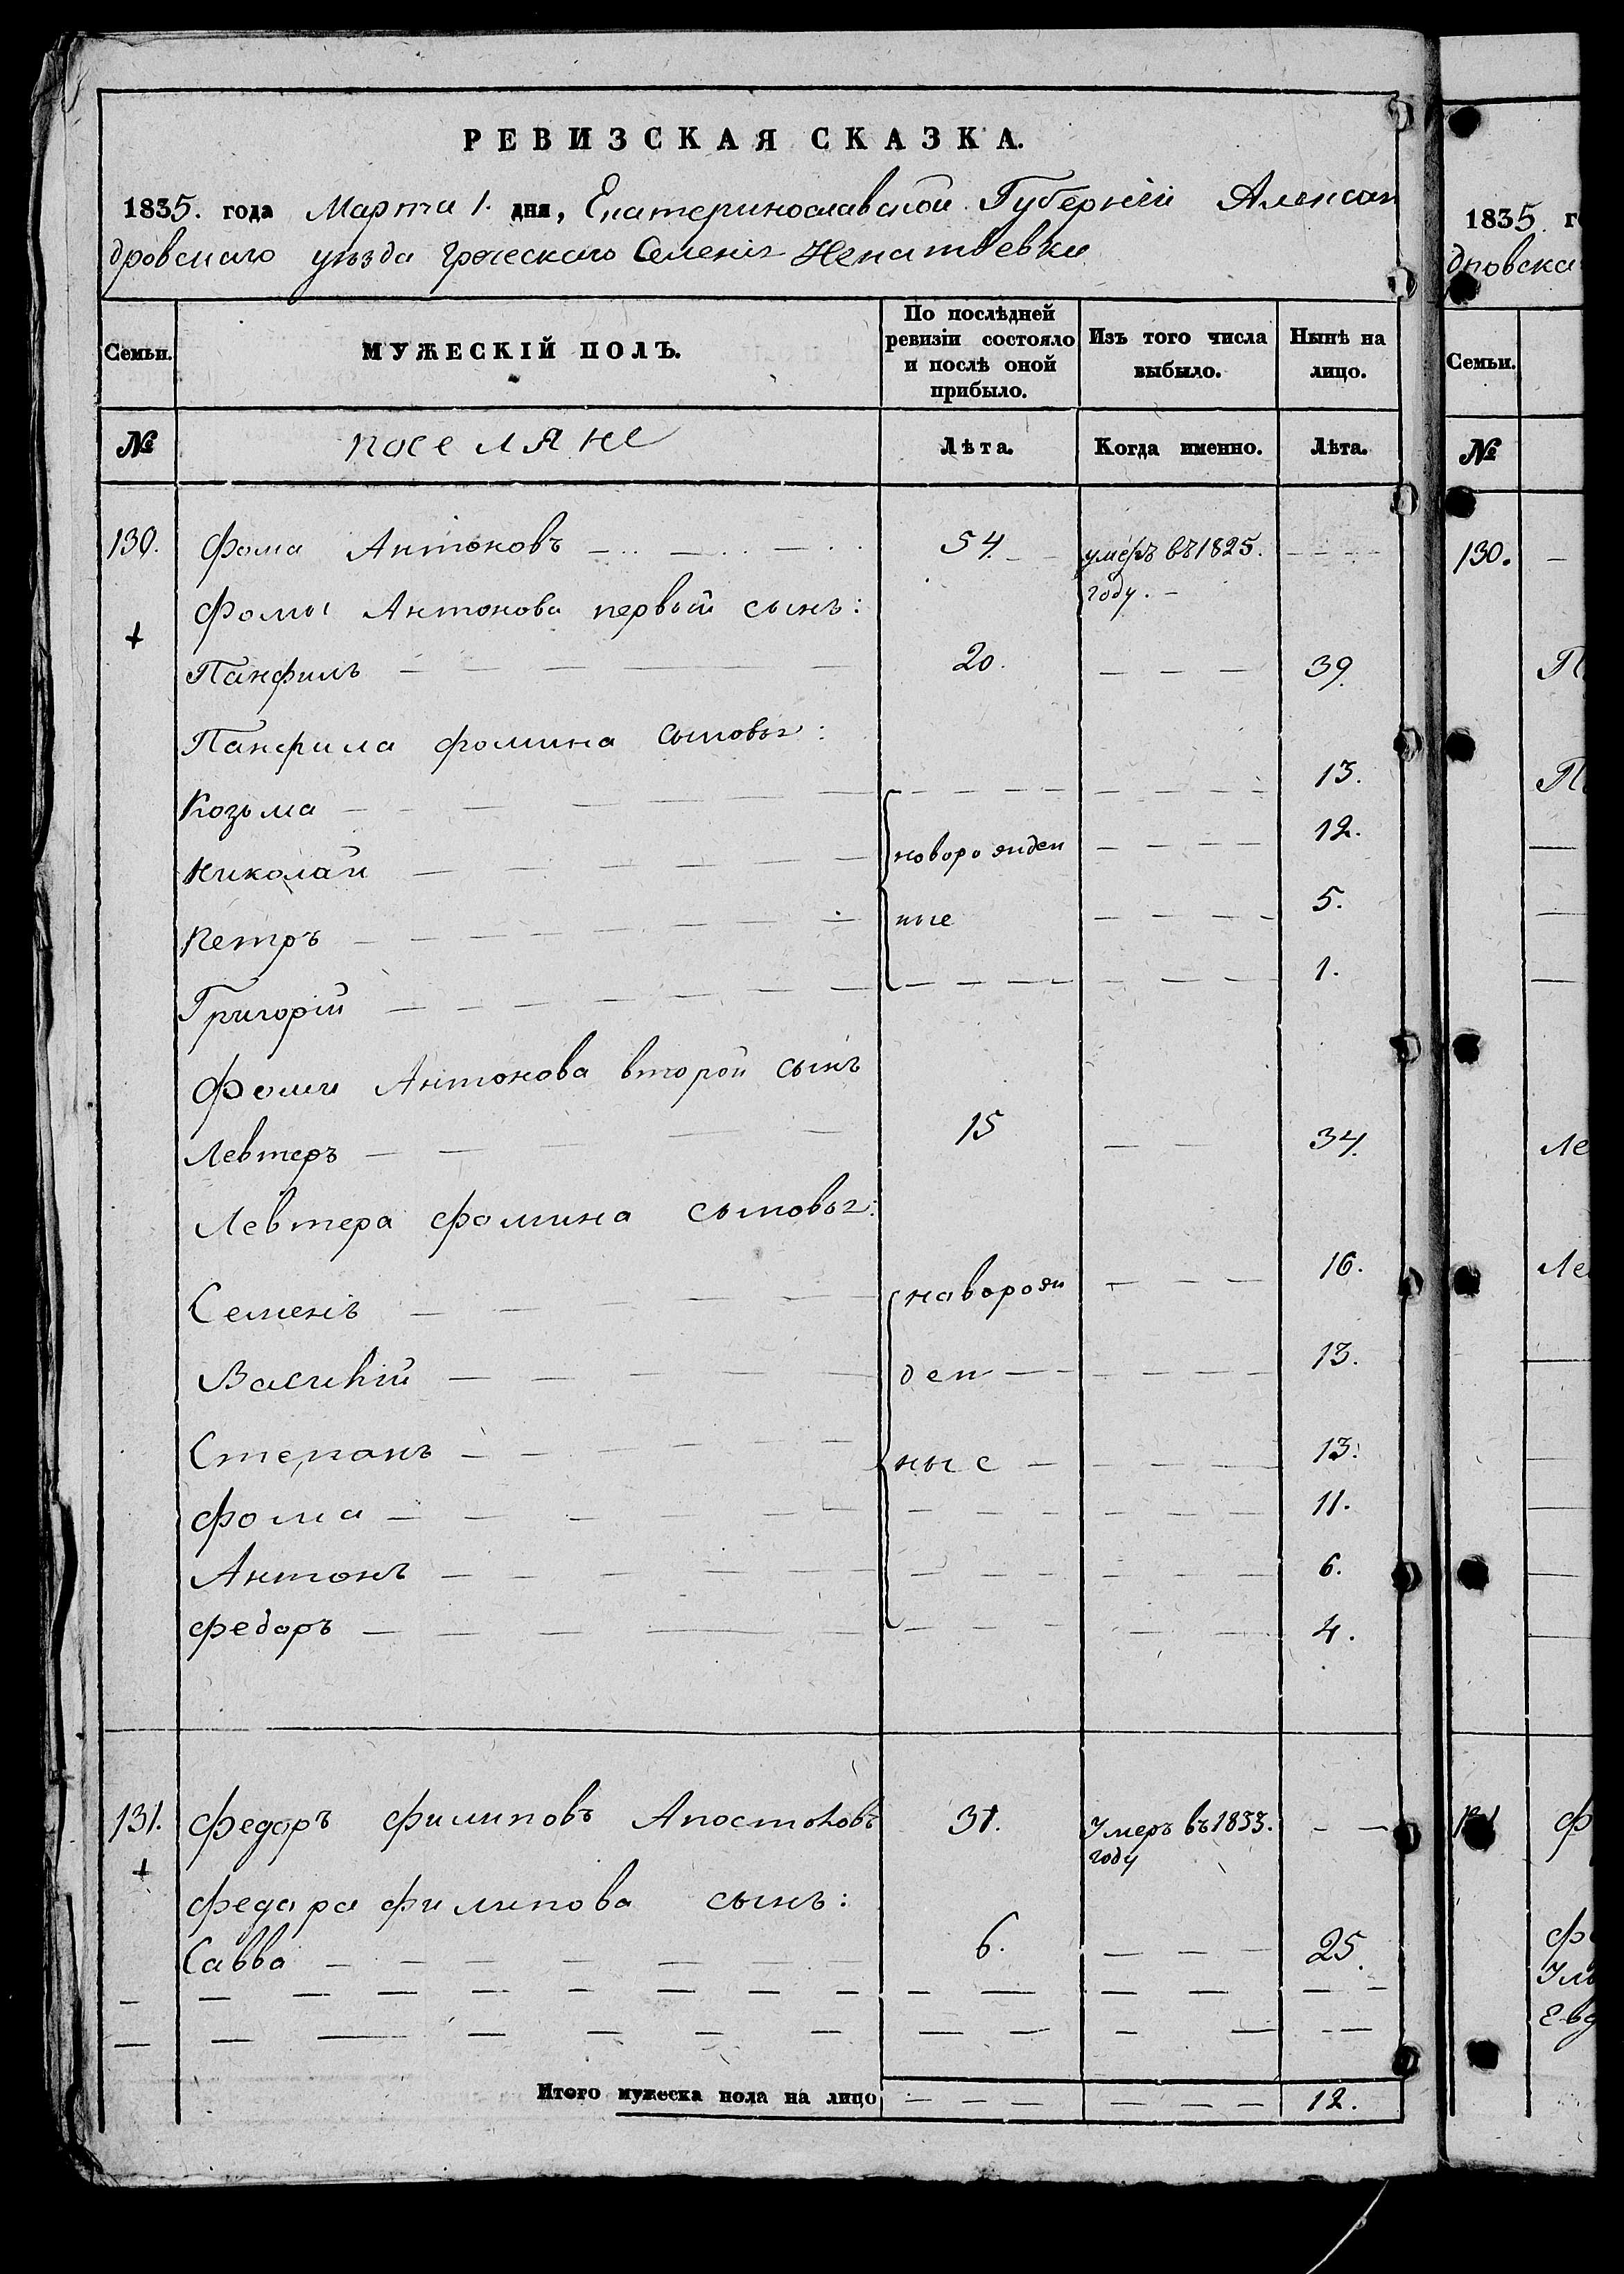 РЕВИЗСКАЯ СКАЗКА.
1835. года Марта 1. дня, Екатеринославской Губерніи Алексан
дровскаго уѣзда греческаго Селенія Игнатіевки
Семьи. МУЖЕСКІЙ ПОЛЪ. По послѣдней ревизіи состояло и послѣ оной прибыло. Изъ того числа выбыло. Нынѣ на лицо.
№ поселяне Лѣта. Когда именно. Лѣта.
130. Фома Антоновъ 54. умеръ въ 1825.
году.
Фомы Антонова первый сынъ:
+
Панфилъ 20. 39.
Панфила Фомина сыновья:
Козьма 13.
Николай новорожден 12.
Петръ ные 5.
Григорій 1.
Фомы Антонова второй сынъ
Левтеръ 15 34.
Левтера Фомина сыновья:
Семенъ новорож 16.
Василій ден 13.
Степанъ ные 13.
Фома 11.
Антонъ 6.
Федоръ 4.
131. Федоръ Филиповъ Апостоловъ 31. Умеръ въ 1833.
году
+
Федора Филипова сынъ:
Савва 6. 25.
Итого мужеска пола на лицо 12.
1835. г
дровска
Семьи.
№
130.
П
П
Ле
Ле
Ф